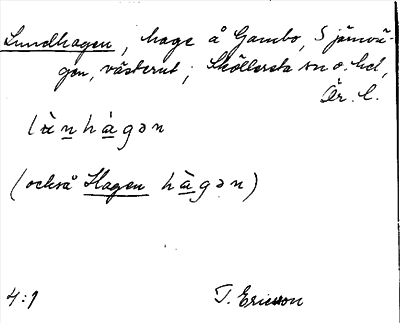 Lundhagen, hage å Gambo, S järnvä-
gen, västerut; Sköllersta sn o. hd,
Ör. l.
hàgən
(också Hagen hàgən)
4:1 T. Ericson